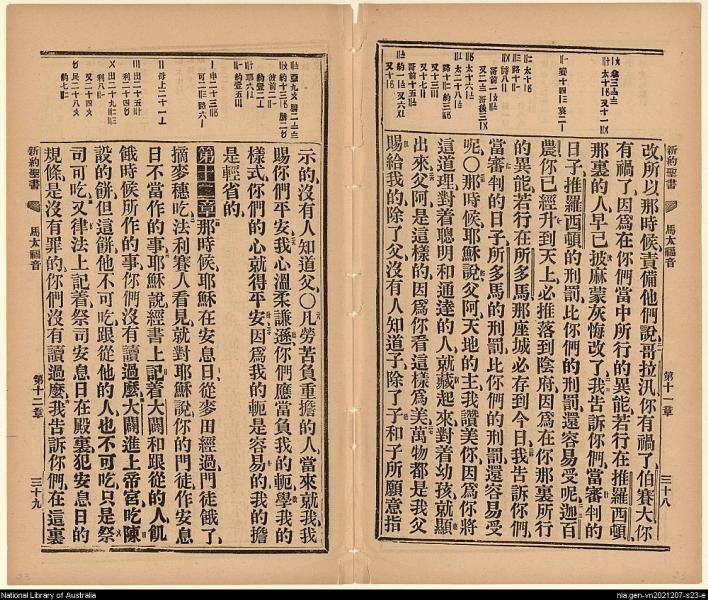 新約聖書
馬太福音
第十一章
三十八
改所以那時候責備他們說哥拉汛你有禍了伯賽大你
有禍了因爲在你們當中所行的異能若行在推羅西頓
那裏的人早已披麻蒙灰悔改了我告訴你們當審判的
日子推羅西頓的刑罰比你們的刑罰還容易受呢迦百
農你已經升到天上必推落到陰府因爲在你那裏所行
的異能若行在所多馬那座城必存到今日我告訴你們
當審判的日子所多馬的刑罰比你們的刑罰還容易受
呢〇那時候耶穌說父阿天地的主我讚美你因爲你將
這道理對着聰明和通達的人就藏起來對着幼孩就顯
出來父阿是這樣的因爲你看這樣爲美萬物都是我父
賜給我的除了父沒有人知道子除了子和子所願意指
示的沒有人知道父〇凡勞苦負重擔的人當來就我我
賜你們平安我心溫柔謙遜你們應當負我的軛學我的
樣式你們的心就得平安因爲我的軛是容易的我的擔
是輕省的
第十二章那時候耶穌在安息日從麥田經過門徒餓了
摘麥穗吃法利賽人看見就對耶穌說你的門徒作安息
日不當作的事耶穌說經書上記着大闢和跟從的人飢
餓時候所作的事你們沒有讀過麽大闢進上帝宮吃陳
設的餅但這餅他不可吃跟從他的人也不可吃只是祭
司可吃又律法上記着祭司安息日在殿裏犯安息日的
規條是沒有罪的你們沒有讀過麽我告訴你們在這裏
新約聖書
馬太福音
第十二章
三十九
National Library of Australia
nla.gen-vn2021207-s23-e